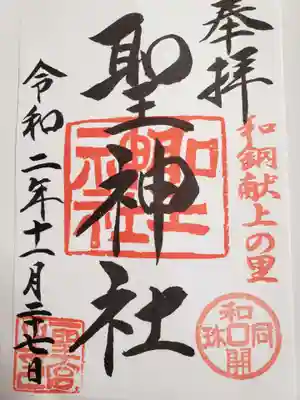 奉拝
和銅献上の里
聖神社
令和二年十一月二十七日
和同開珎